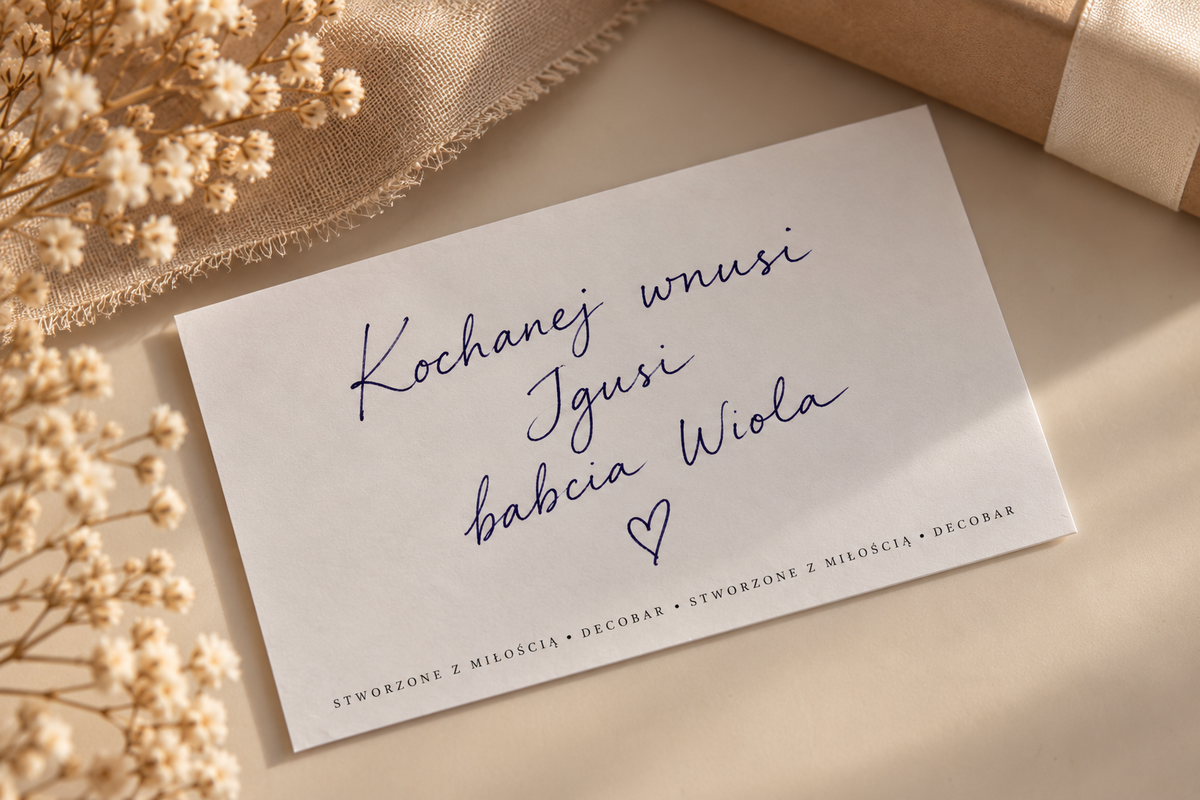 Kochanej wnusi
Igusi
babcia Wiola
STWORZONE Z MIŁOŚCIĄ • DECOBAR • STWORZONE Z MIŁOŚCIĄ • DECOBAR